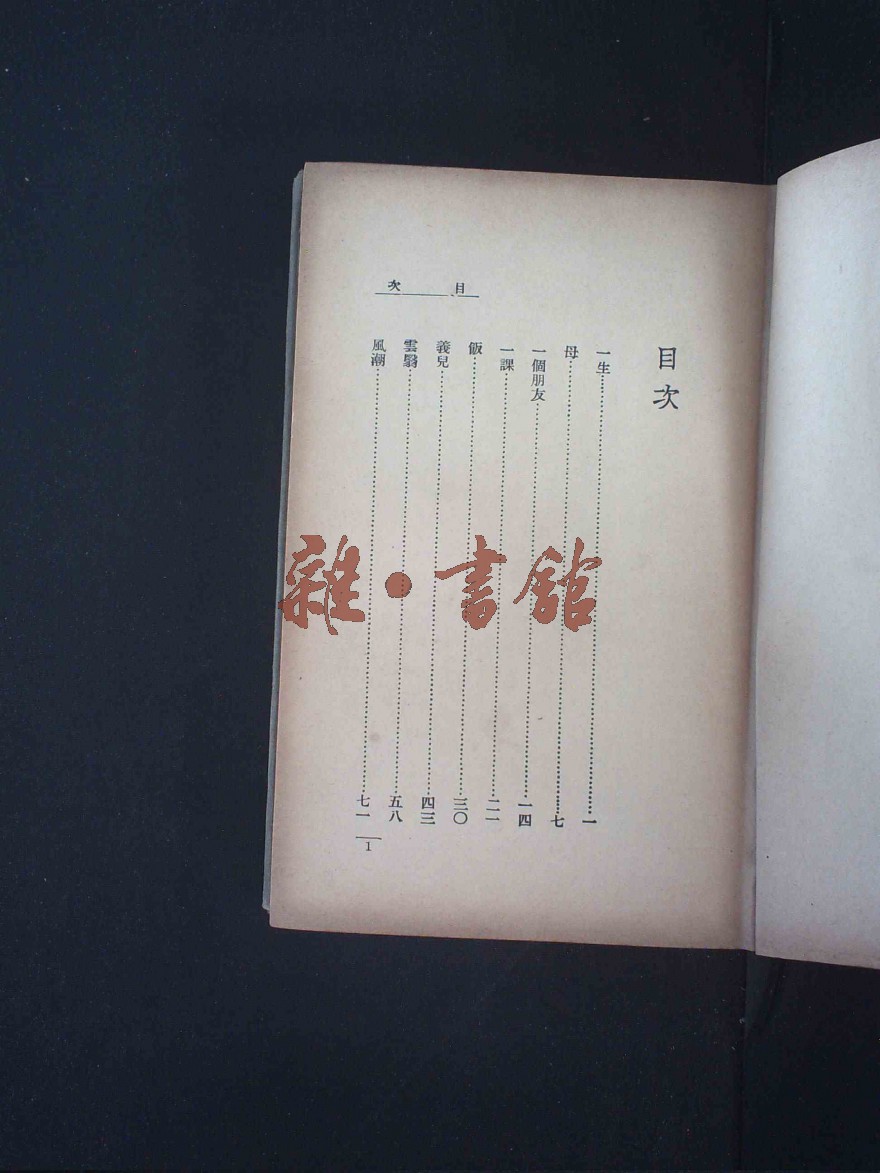 目次
目次
一生一
母七
一個朋友一四
一課二一
飯三〇
義兒四三
雲翳五八
風潮七一
1
雜·書館